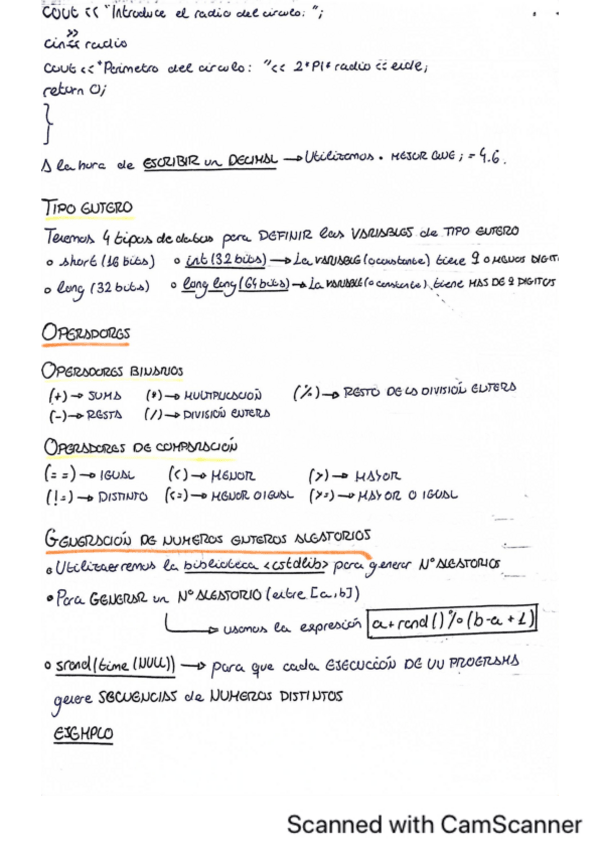 cout << "Introduce el radio del circulo: ";
cin >> radio
cout << "Perimetro del circulo: " << 2*PI* radio << endl;
return 0;
}
A la hora de ESCRIBIR un DECIMAL → Utilizamos . MEJOR QUE ; = 4.6.
TIPO ENTERO
Tenemos 4 tipos de datos para DEFINIR las VARIABLES de TIPO ENTERO
o short (16 bits) o int (32 bits) → La VARIABLE (o constante) tiene 9 o MENOS DIGIT
o long (32 bits) o long long (64 bits) → La VARIABLE (o constante), tiene MAS DE 9 DIGITOS
OPERADORES
OPERADORES BINARIOS
(+) → SUMA (*) → MULTIPLICACIÓN (%) → RESTO DE LA DIVISIÓN ENTERA
(-) → RESTA (/) → DIVISIÓN ENTERA
OPERADORES DE COMPARACIÓN
(==) → IGUAL (<) → MENOR (>) → MAYOR
(!=) → DISTINTO (<=) → MENOR O IGUAL (>=) → MAYOR O IGUAL
GENERACIÓN DE NUMEROS ENTEROS ALEATORIOS
• Utilizaremos la biblioteca <cstdlib> para generar Nº ALEATORIOS
• Para GENERAR un Nº ALEATORIO (entre [a,b])
→ usamos la expresión a+rand()%(b-a+1)
o srand(time(NULL)) → para que cada EJECUCIÓN DE UN PROGRAMA
genere SECUENCIAS de NUMEROS DISTINTOS
EJEMPLO
Scanned with CamScanner